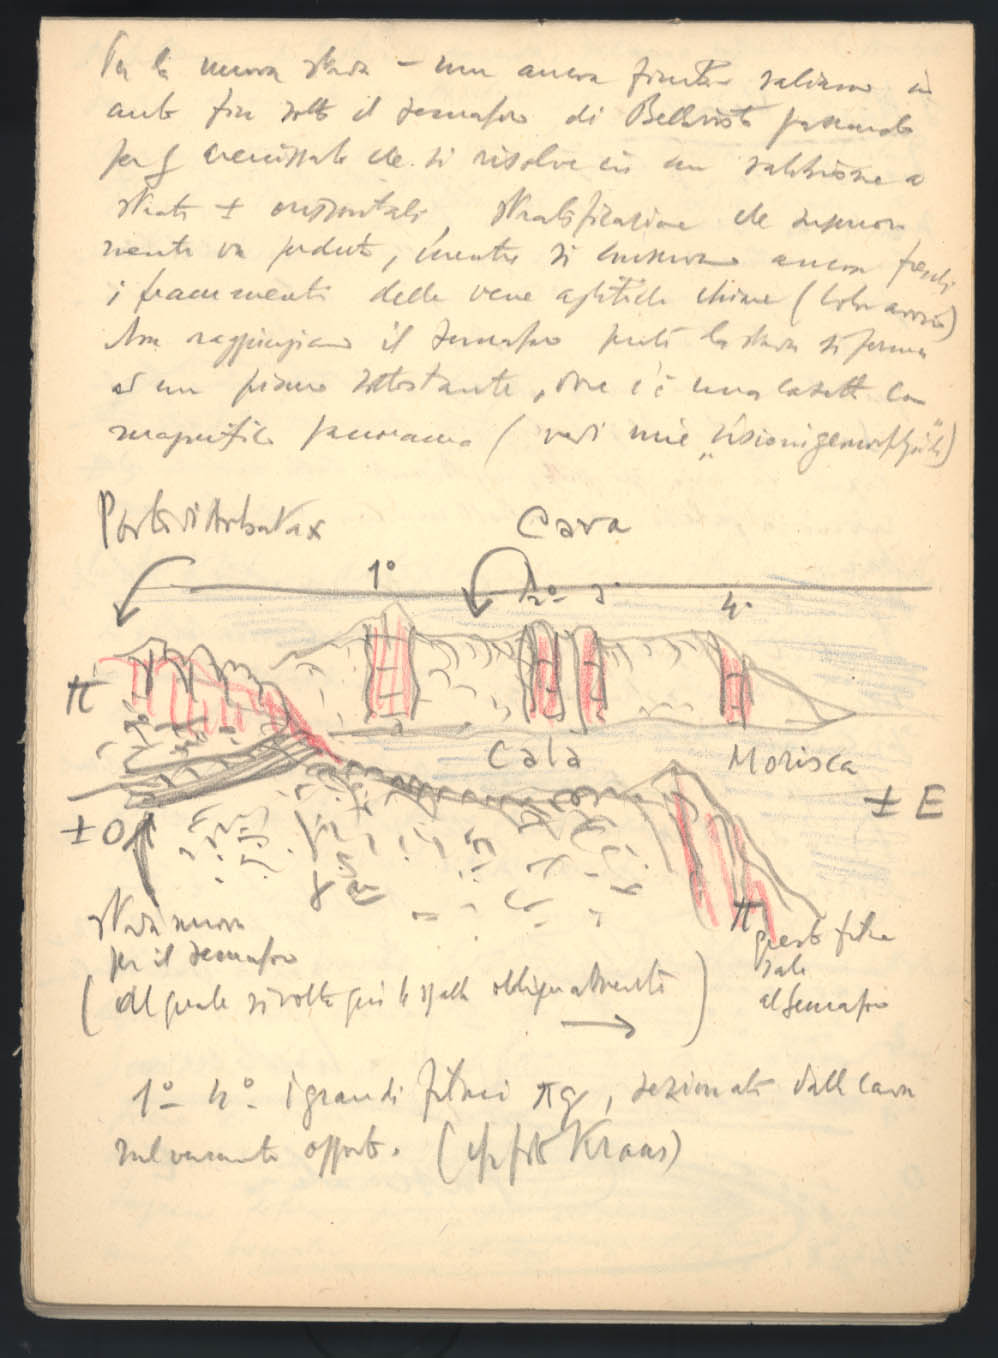 Per la nuova strada – non ancora finita saliamo in
auto fin sotto il semaforo di Bellavista passando
per g arenizzato che si risolve in un sabbione a
strati ± orizzontali, stratificazione che superior
mente va perduta, mentre si conservano ancora freschi
i frammenti delle vene aplitiche chiare
Non raggiungiamo il semaforo perché la strada si ferma
ad un piano sottostante, dove c'è una casetta con
magnifico panorama (vedi mie „visioni geomorfologiche")
Porto di Arbatax
Cava
1° 2° 3° 4°
π
Cala Morisca
± E
± O
γ
π
strada nuova
per il semaforo
(al quale si volta qui le spalle obliquamente)
questo filone
sale
al semaforo
1° 4° i grandi filoni πq, sezionati dalla cava
sul versante opposto. (foto Kraus)